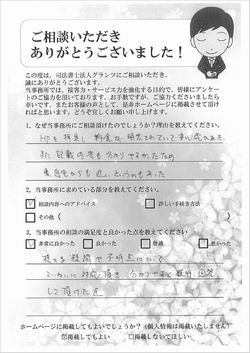 ご相談いただき
ありがとうございました！
この度は、司法書士法人グランツにご相談いただき、
誠にありがとうございました。
当事務所では、接客力・サービス力を強化する目的で、皆様にアンケー
トのご協力を頂いております。お手数ですが、ご協力くださいましたら
幸いです。またお客様の声として、是非ホームページに掲載させて頂け
ればと思います。どうぞ宜しくお願い申し上げます。
1. なぜ当事務所にご相談頂けたのでしょうか？理由を教えてください。
HPを拝見し、料金が明示されていて安心感がある
また記載内容も分かりやすかったため
2. 当事務所に求めている部分を教えてください。
相談内容へのアドバイス 詳しい手続き方法
その他（ ）
3. 当事務所の相談の満足度と良かった点を教えてください。
非常に良かった 良かった 普通 悪かった
疑問や不明点について
ていねいに対応頂き 分かりやすく 回答
して頂けた点
ホームページに掲載してもよいでしょうか？（個人情報は掲載いたしません）
掲載してもよい 掲載しないでほしい